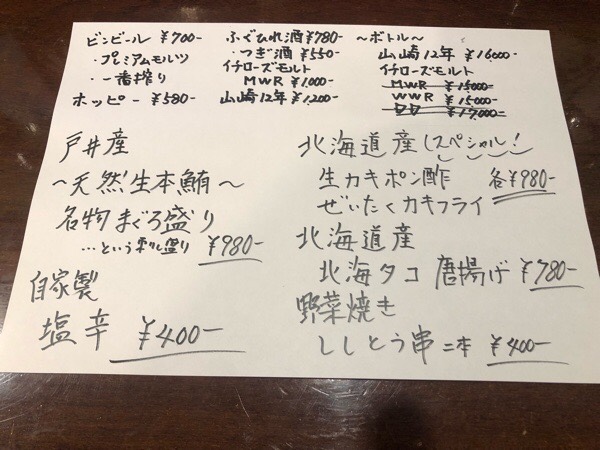 ビンビール ¥700-
・プレミアムモルツ
・一番搾り
ホッピー ¥580-
ふぐひれ酒 ¥780-
・つぎ酒 ¥550-
イチローズモルト
MWR ¥1,000-
山崎12年 ¥1,200-
〜ボトル〜
山崎12年 ¥16000-
イチローズモルト
MWR ¥15000-
WWR ¥15000-
¥17000-
戸井産
〜天然生本鮪〜
名物まぐろ盛り
…という刺し盛り ¥980-
自家製
塩辛 ¥400-
北海道産スペシャル!
生カキポン酢 各¥980-
ぜいたくカキフライ
北海道産
北海タコ 唐揚げ ¥780-
野菜焼き
ししとう串 二本 ¥400-